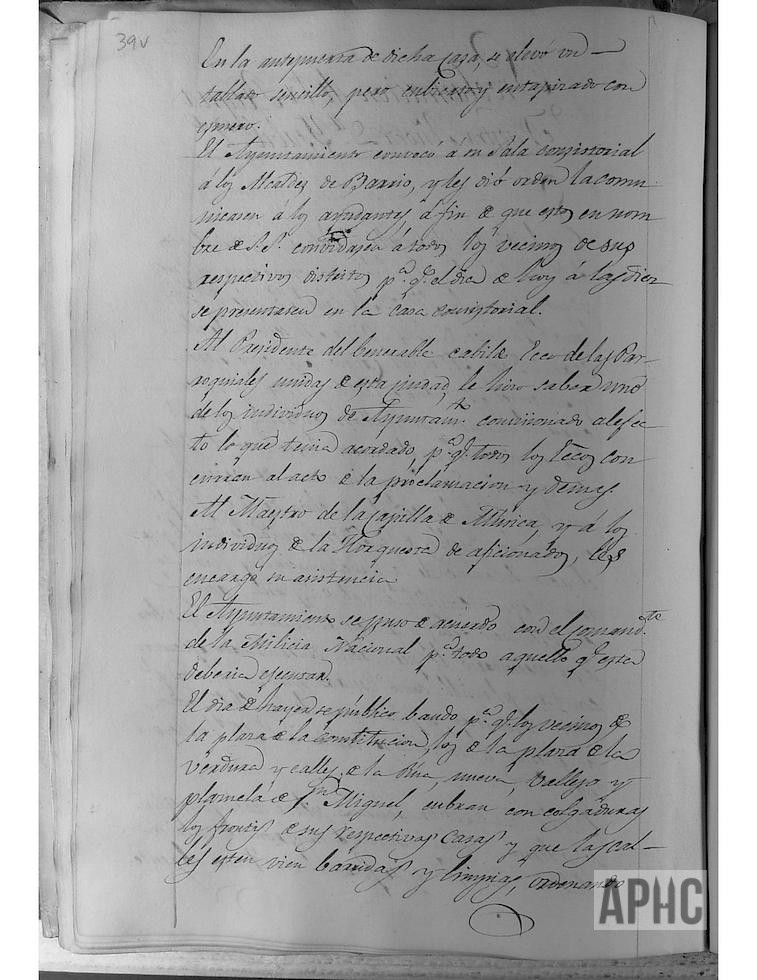 39v
En la antepuerta de dicha Casa, se elevó un
tablado sencillo, pero cubierto y entapizado con
esmero.
El Ayuntamiento convocó a su Sala consistorial
á los Alcaldes de Barrio, y les dió orden la comu-
nicasen á los ayudantes, á fin de que estos en nom-
bre de S.S. convidasen á todos los vecinos de sus
respectivos distritos pª. qe. el dia de hoy á las diez
se presentasen en la Casa consistorial.
Al Presidente del Venerable Cabildo Ecco de las Par-
roquiales unidas de esta Ciudad, le hizo saber uno
de los individuos de Ayuntamto. comisionado al efec-
to lo que tenia acordado pª. qe. todos los Eccos con-
curran al acto de la proclamacion y demas.
Al Maestro de la Capilla de Musica, y á los
individuos de la Horquesta de aficionados, les
encargó su asistencia
El Ayuntamiento se puso de acuerdo con el Comandte
de la Milicia Nacional pª. todo aquello qe. esta
deberia ejecutar.
El dia de hayer se público bando pª. qe. los vecinos de
la plaza de la Constitucion, los de la plaza de la
Verdura y calles de la Rua, nueva, Vallejo y
plazuela de Sn. Miguel, cubran con colgaduras
los frontis de sus respectivas Casas y que las cal-
les esten vien barridas y limpias, ordenando
APHC